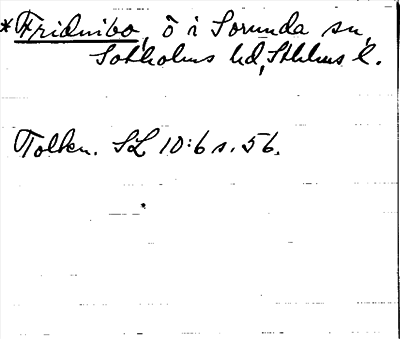 *Fridnibo, ö i Sorunda sn,
Sotholms hd, Sthlms l.
Tolkn. SL 10:6 s. 56.